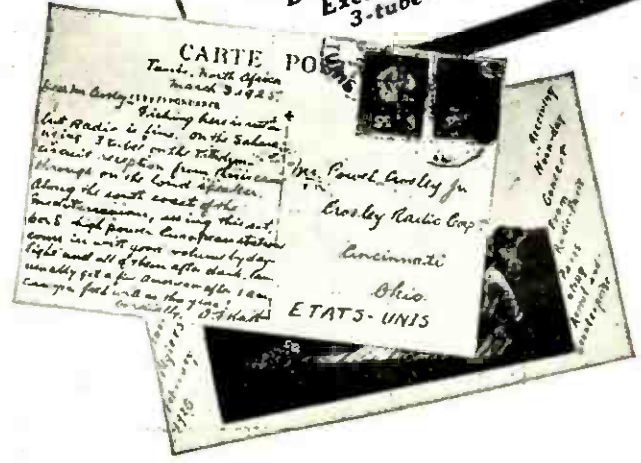 3-tube
CARTE PO
Tunis, North Africa
March 3 1925.
Dear Mr Crosley
Fishing here is not
but Radio is fine. On the Sahara
using 3 tubes on the
circuit reception from American
through on the loud speaker.
Along the south coast of the
Mediterranean, using this set,
5 high power European stations
come in with good volume by day-
light and all of them after dark.
usually get a few American after 1 am
Can you
Cordially,
Mr. Powel Crosley Jr
Crosley Radio Corp.
Cincinnati
Ohio.
ETATS-UNIS
Receiving
Noonday
Concert
From
Radio-Paris
Paris
using
and
counterpoise
Algiers
February
1925